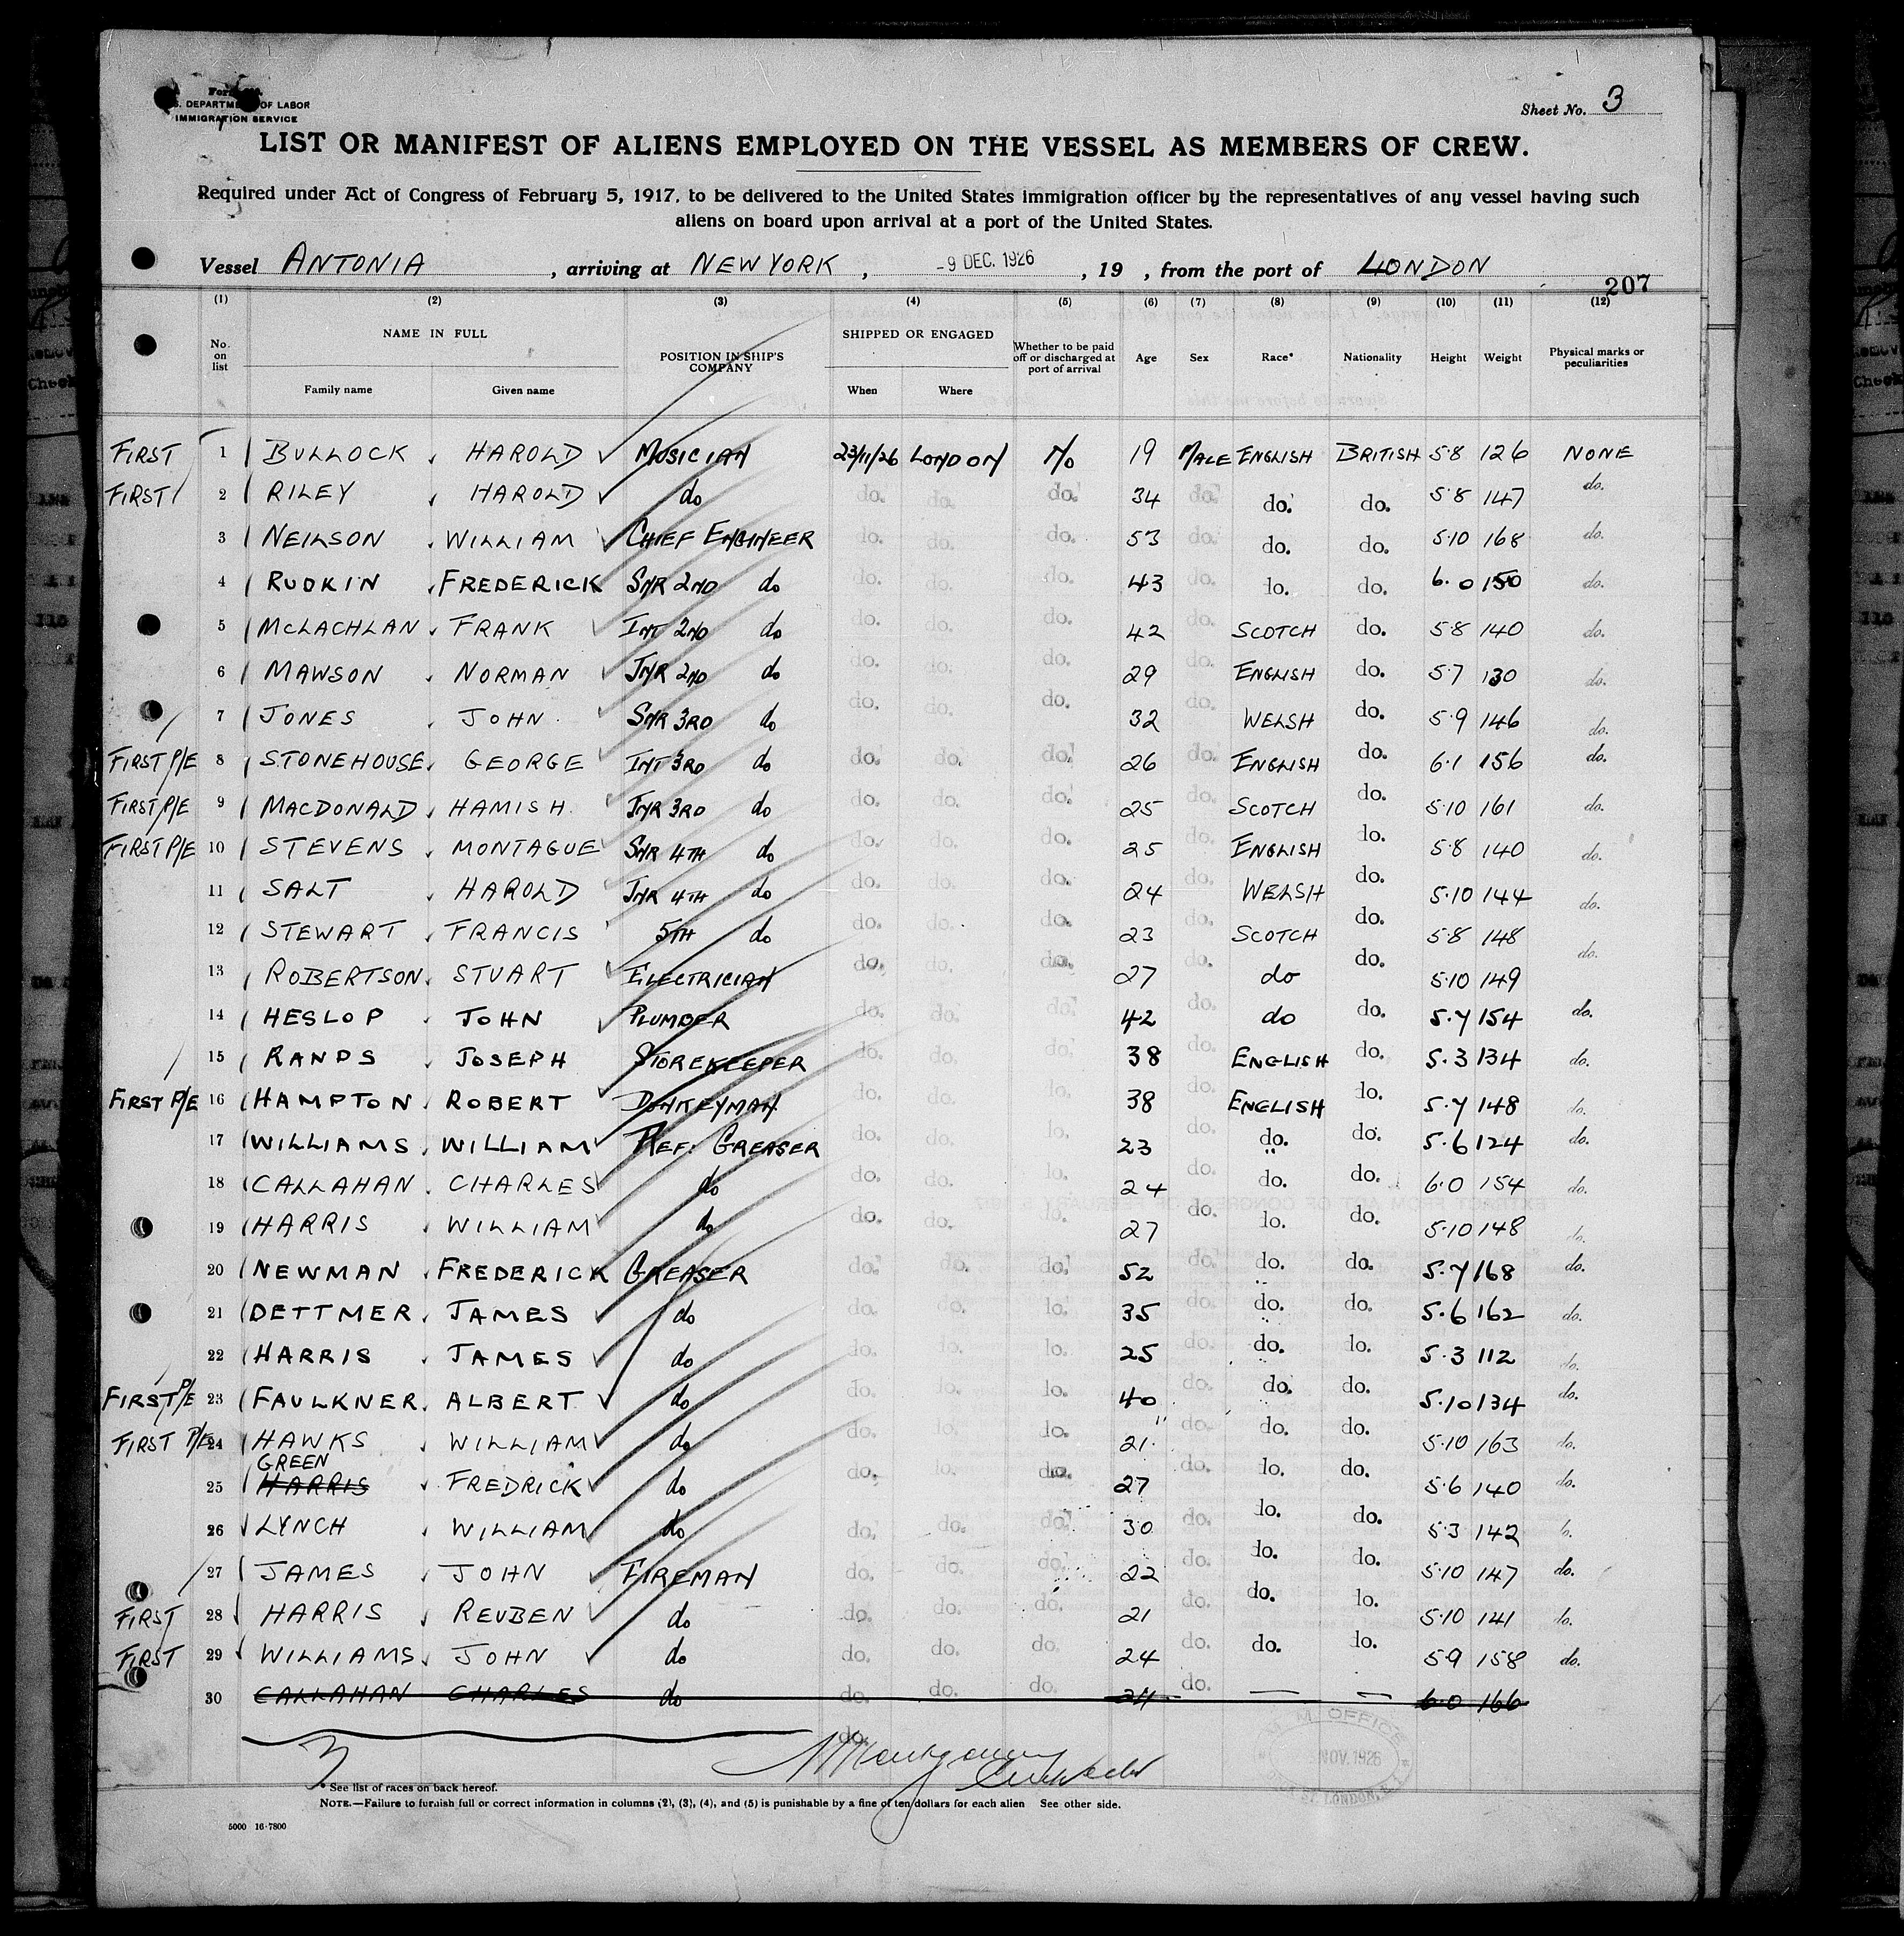 Sheet No. 3
S. DEPARTMENT OF LABOR
IMMIGRATION SERVICE
LIST OR MANIFEST OF ALIENS EMPLOYED ON THE VESSEL AS MEMBERS OF CREW.
Required under Act of Congress of February 5, 1917, to be delivered to the United States immigration officer by the representatives of any vessel having such
aliens on board upon arrival at a port of the United States.
Vessel ANTONIA , arriving at NEW YORK , -9 DEC. 1926 , 19 , from the port of LONDON
207
(1) (2) (3) (4) (5) (6) (7) (8) (9) (10) (11) (12)
No. on list NAME IN FULL Family name Given name POSITION IN SHIP'S COMPANY SHIPPED OR ENGAGED When Where Whether to be paid off or discharged at port of arrival Age Sex Race* Nationality Height Weight Physical marks or peculiarities
FIRST 1 BULLOCK HAROLD MUSICIAN 23/11/26 LONDON No 19 MALE ENGLISH BRITISH 5·8 126 NONE
FIRST 2 RILEY HAROLD do do. do. do. 34 do. do. do. 5·8 147 do.
3 NEILSON WILLIAM CHIEF ENGINEER do. do. do. 53 do. do. do. 5·10 168 do.
4 RUDKIN FREDERICK SNR 2ND do do. do. do. 43 do. do. do. 6·0 150 do.
5 McLACHLAN FRANK INT 2ND do do. do. do. 42 do. SCOTCH do. 5·8 140 do.
6 MAWSON NORMAN JNR 2ND do do. do. do. 29 do. ENGLISH do. 5·7 130 do.
7 JONES JOHN SNR 3RD do do. do. do. 32 do. WELSH do. 5·9 146 do.
FIRST P/E 8 STONEHOUSE GEORGE INT 3RD do do. do. do. 26 do. ENGLISH do. 6·1 156 do.
FIRST P/E 9 MACDONALD HAMISH JNR 3RD do do. do. do. 25 do. SCOTCH do. 5·10 161 do.
FIRST P/E 10 STEVENS MONTAGUE SNR 4TH do do. do. do. 25 do. ENGLISH do. 5·8 140 do.
11 SALT HAROLD JNR 4TH do do. do. do. 24 do. WELSH do. 5·10 144 do.
12 STEWART FRANCIS 5TH do do. do. do. 23 do. SCOTCH do. 5·8 148 do.
13 ROBERTSON STUART ELECTRICIAN do. do. do. 27 do. do do. 5·10 149
14 HESLOP JOHN PLUMBER do. do. do. 42 do. do do. 5·7 154 do.
15 RANDS JOSEPH STOREKEEPER do. do. do. 38 do. ENGLISH do. 5·3 134 do.
FIRST P/E 16 HAMPTON ROBERT DONKEYMAN do. do. do. 38 do. ENGLISH do. 5·7 148 do.
17 WILLIAMS WILLIAM REF. GREASER do. do. do. 23 do. do. do. 5·6 124 do.
18 CALLAHAN CHARLES do do. do. do. 24 do. do. do. 6·0 154 do.
19 HARRIS WILLIAM do do. do. do. 27 do. do. do. 5·10 148 do.
20 NEWMAN FREDERICK GREASER do. do. do. 52 do. do. do. 5·7 168 do.
21 DETTMER JAMES do do. do. do. 35 do. do. do. 5·6 162 do.
22 HARRIS JAMES do do. do. do. 25 do. do. do. 5·3 112 do.
FIRST P/E 23 FAULKNER ALBERT do do. do. do. 40 do. do. do. 5·10 134 do.
FIRST P/E 24 HAWKS WILLIAM do do. do. do. 21 do. do. do. 5·10 163 do.
GREEN
25 HARRIS FREDRICK do do. do. do. 27 do. do. do. 5·6 140 do.
26 LYNCH WILLIAM do do. do. do. 30 do. do. do. 5·3 142 do.
27 JAMES JOHN FIREMAN do. do. do. 22 do. do. do. 5·10 147 do.
FIRST 28 HARRIS REUBEN do do. do. do. 21 do. do. do. 5·10 141 do.
FIRST 29 WILLIAMS JOHN do do. do. do. 24 do. do. do. 5·9 158 do.
30 CALLAHAN CHARLES do do. do. do. 24 do. — — 6·0 166
do.
M. M. OFFICE
NOV. 1926
ST. LONDON, E.1
* See list of races on back hereof.
NOTE.—Failure to furnish full or correct information in columns (2), (3), (4), and (5) is punishable by a fine of ten dollars for each alien See other side.
5000 16-7800